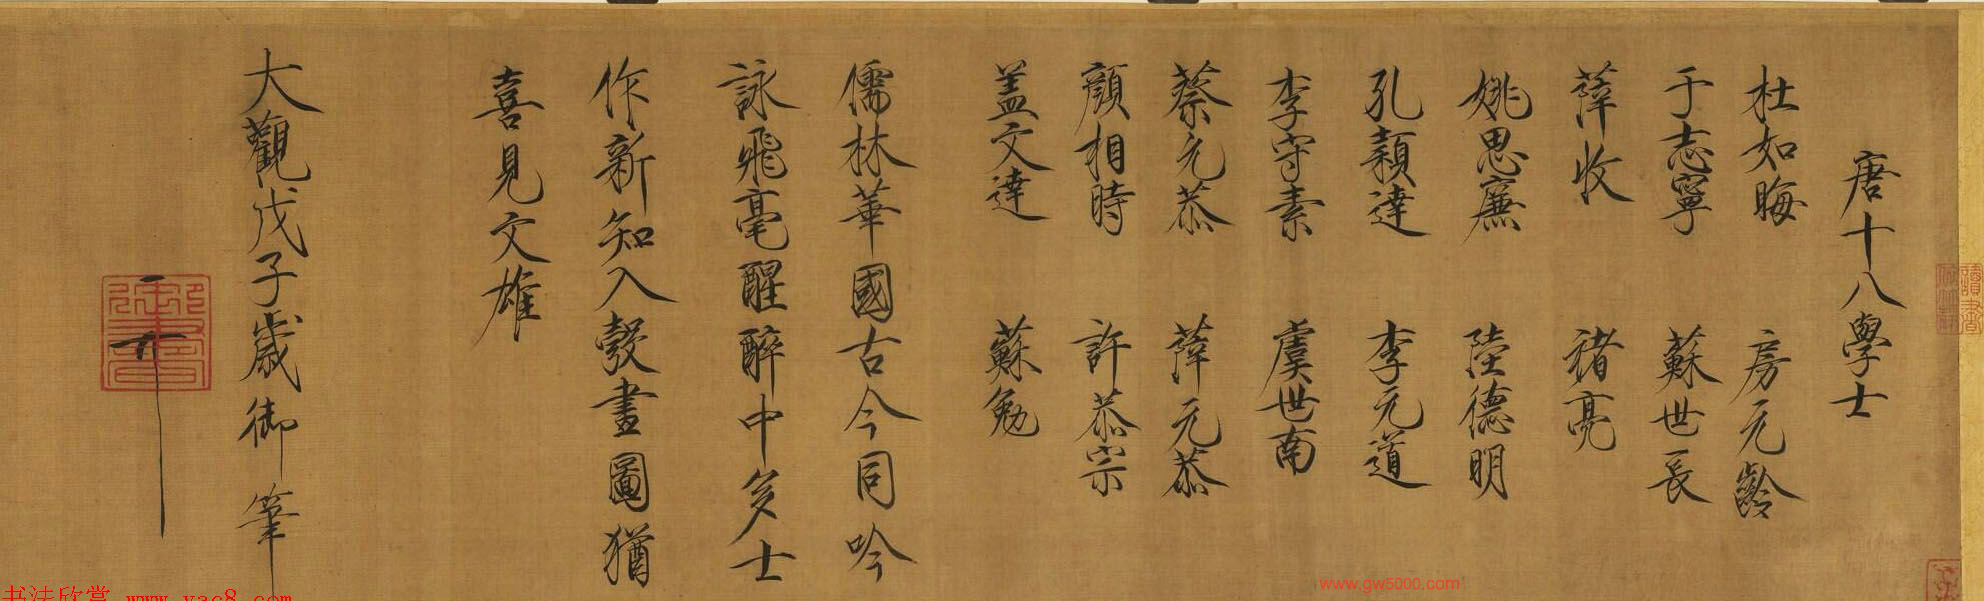 唐十八學士
杜如晦 房元齡
于志寧 蘇世長
薛收 褚亮
姚思廉 陸德明
孔穎達 李元道
李守素 虞世南
蔡元恭 薛元恭
顏相時 許恭宗
盖文達 蘇勉
儒林華國古今同吟
詠飛毫醒醉中多士
作新知入彀畫圖猶
喜見文雄
大觀戊子歲御筆
御書
讀書
www.gw5000.com
书法欣赏 www.yac8.com